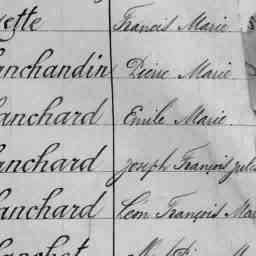 yette Francis Marie
anchandin Pierre Marie
lanchard Emile Marie
lanchard Joseph François Jules
lanchard Léon François Mar